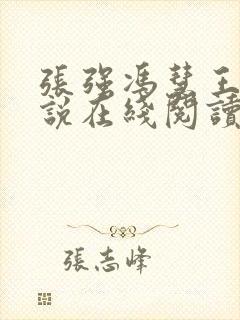 張強馮慧王
說在綫閱讀
張志峰